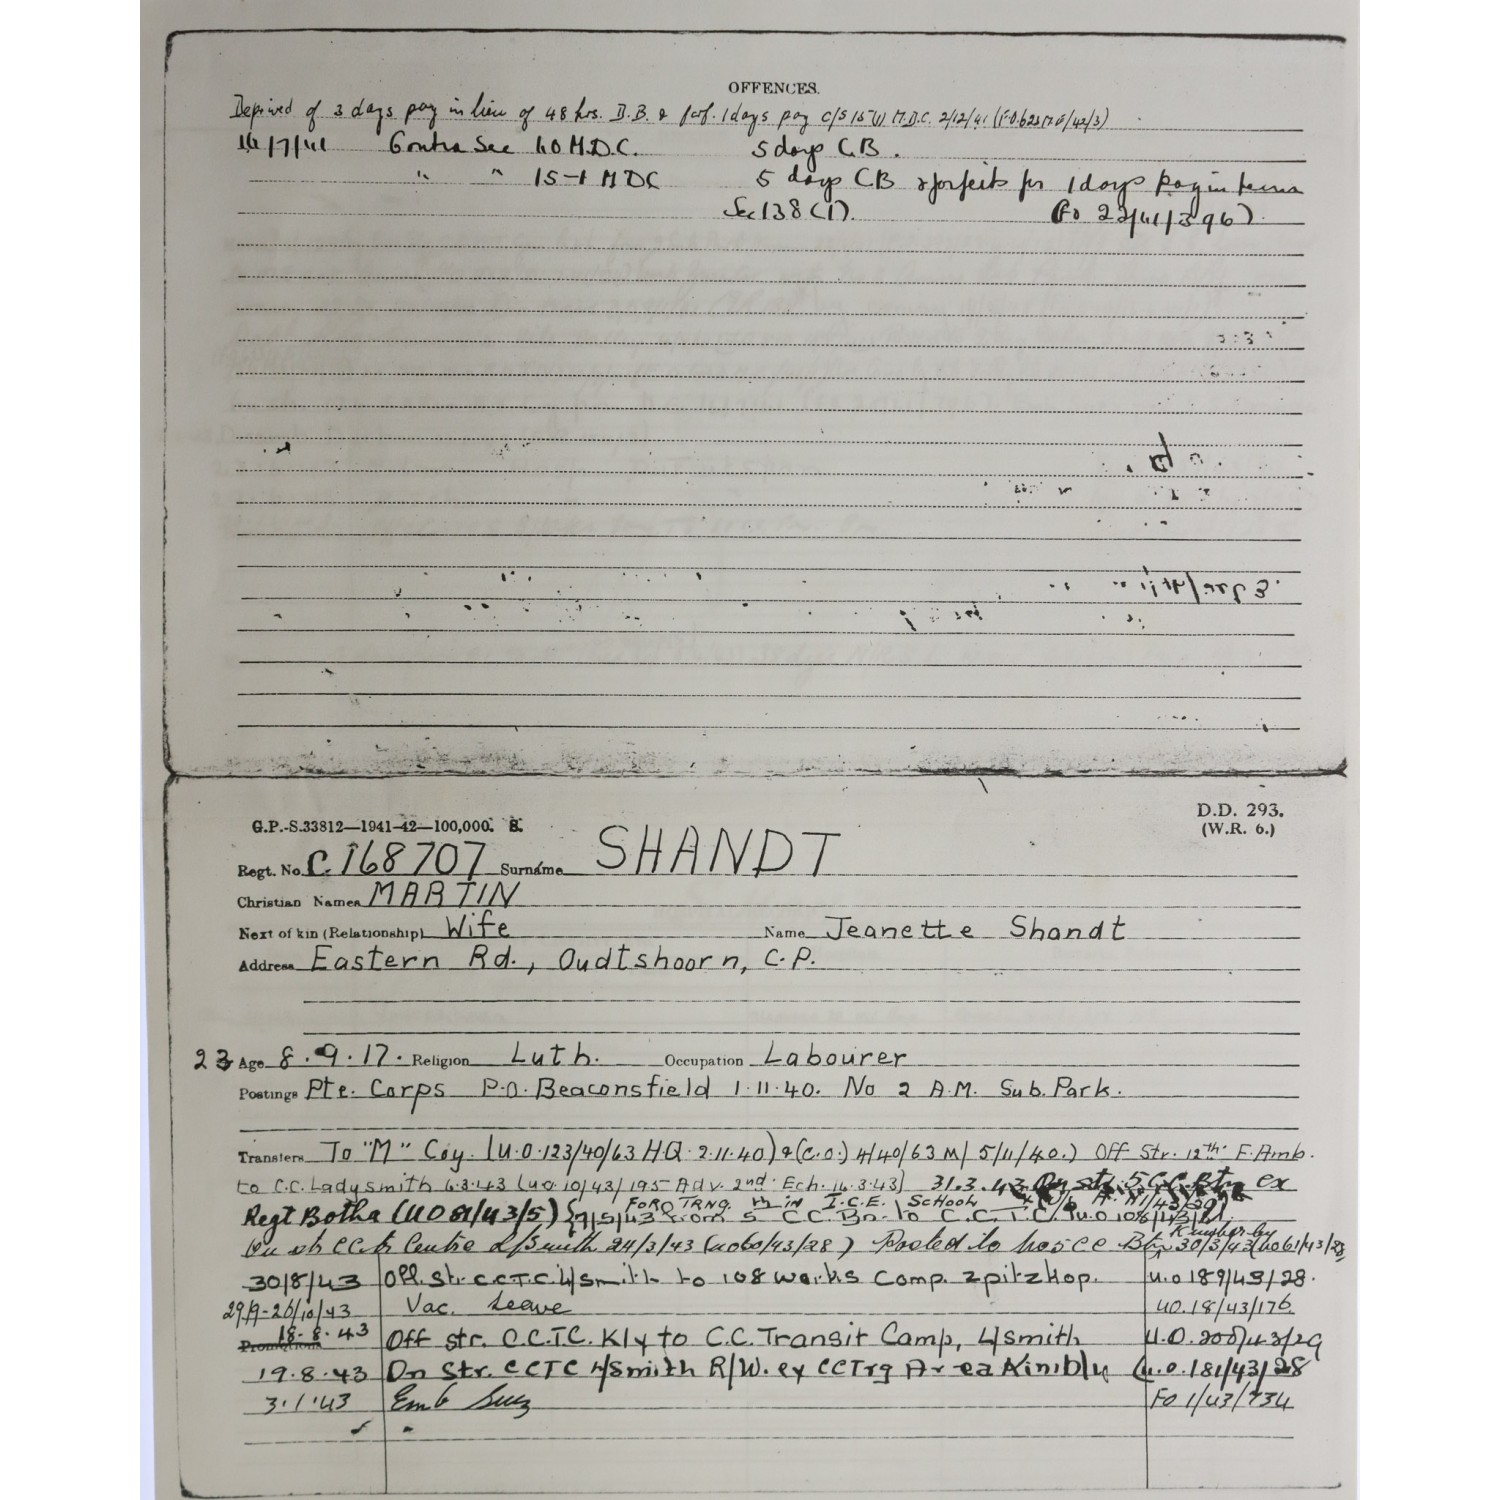 OFFENCES.
Deprived of 3 days pay in lieu of 48 hrs. D.B. & forf. 1 days pay C/S 15 (1) M.D.C. 2/12/41
14/7/41 Contra Sec 40 M.D.C. 5 days C.B.
" " 15-1 MDC 5 days CB & forfeits for 1 days pay in terms
Sec 138 (1). (Fo 22/41/396)
G.P.-S.33812—1941-42—100,000. S.
D.D. 293.
(W.R. 6.)
Regt. No. C. 168707 Surname SHANDT
Christian Names MARTIN
Next of kin (Relationship) Wife Name Jeanette Shandt
Address Eastern Rd., Oudtshoorn, C.P.
23 Age 8.9.17. Religion Luth. Occupation Labourer
Postings Pte. Corps P.O. Beaconsfield 1.11.40. No 2 A.M. Sub. Park.
Transfers To "M" Coy. (U.O.123/40/63 H.Q. 2.11.40) & (C.O.) 4/40/63 M/ 5/11/40.) Off Str. 12th F. Amb.
to C.C. Ladysmith 6.3.43 (u.o. 10/43/195 Adv. 2nd. Ech. 14.3.43) 31.3.43 On str. 5 C.C. Btn ex
FORD TRNG. in I.C.E. SCHOOL
Regt Botha (UO 61/43/5) 9/5/43 from 5 C.C. Bn. to C.C.T.C.
On str CC Centre L/Smith 24/3/43 (uo60/43/28) Posted to no 5 CC Btn 30/3/43 (uo61/43/28)
Kimberley
30/8/43 Off. Str. C.C.T.C. L/smith to 108 Works Comp. Zpitzkop. U.O 189/43/28.
29/9-26/10/43 Vac. Leave UO.18/43/176
Promotions 18.8.43 Off str. C.C.T.C. Kly to C.C. Transit Camp, L/smith U.O.200/43/29
19.8.43 On Str. CCTC L/Smith R/W. ex CCTrg Area Kimbly (u.o.181/43/28
3.1.43 Emb Suez FO 1/43/734